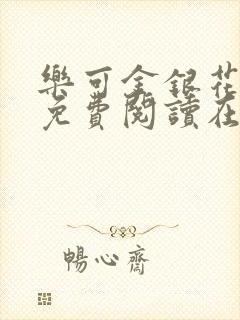 樂可金銀花
免費閱讀在
暢心齋